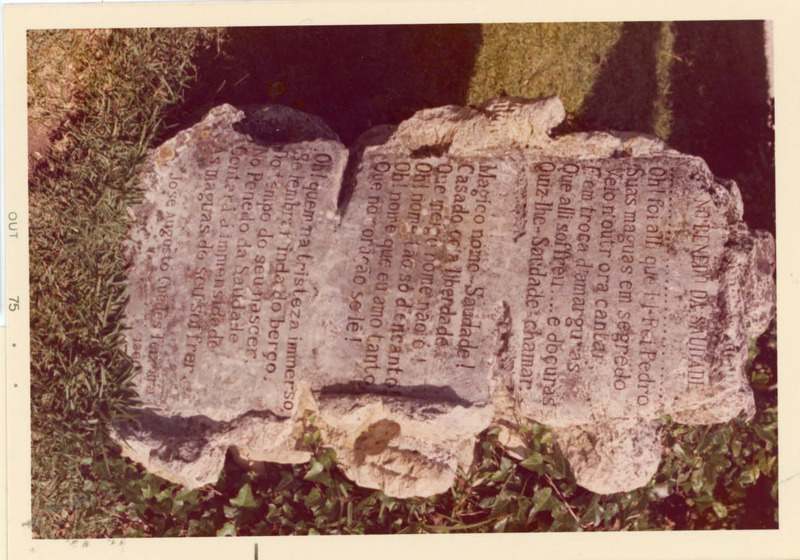 NO PENEDO DA SAUDADE
Oh! foi alli que El-Rei Pedro
Suas maguas em segredo
Veio n'outr'ora cantar.
E em troca d'amarguras
Que alli soffreu... e doçuras
Quiz-lhe-Saudade-chamar.
Magico nome-Saudade!
Casado co'a liberdade
Que meigo nome não é!
Oh! nome tão só d'encanto!
Oh! nome que eu amo tanto,
Que no coração se lê!
Oh! quem na tristeza immerso
Se lembrar inda do berço,
Do tempo do seu nascer,
No Penedo da Saudade
Contará á immensidade
As maguas do seu soffrer.
José Augusto
OUT 75